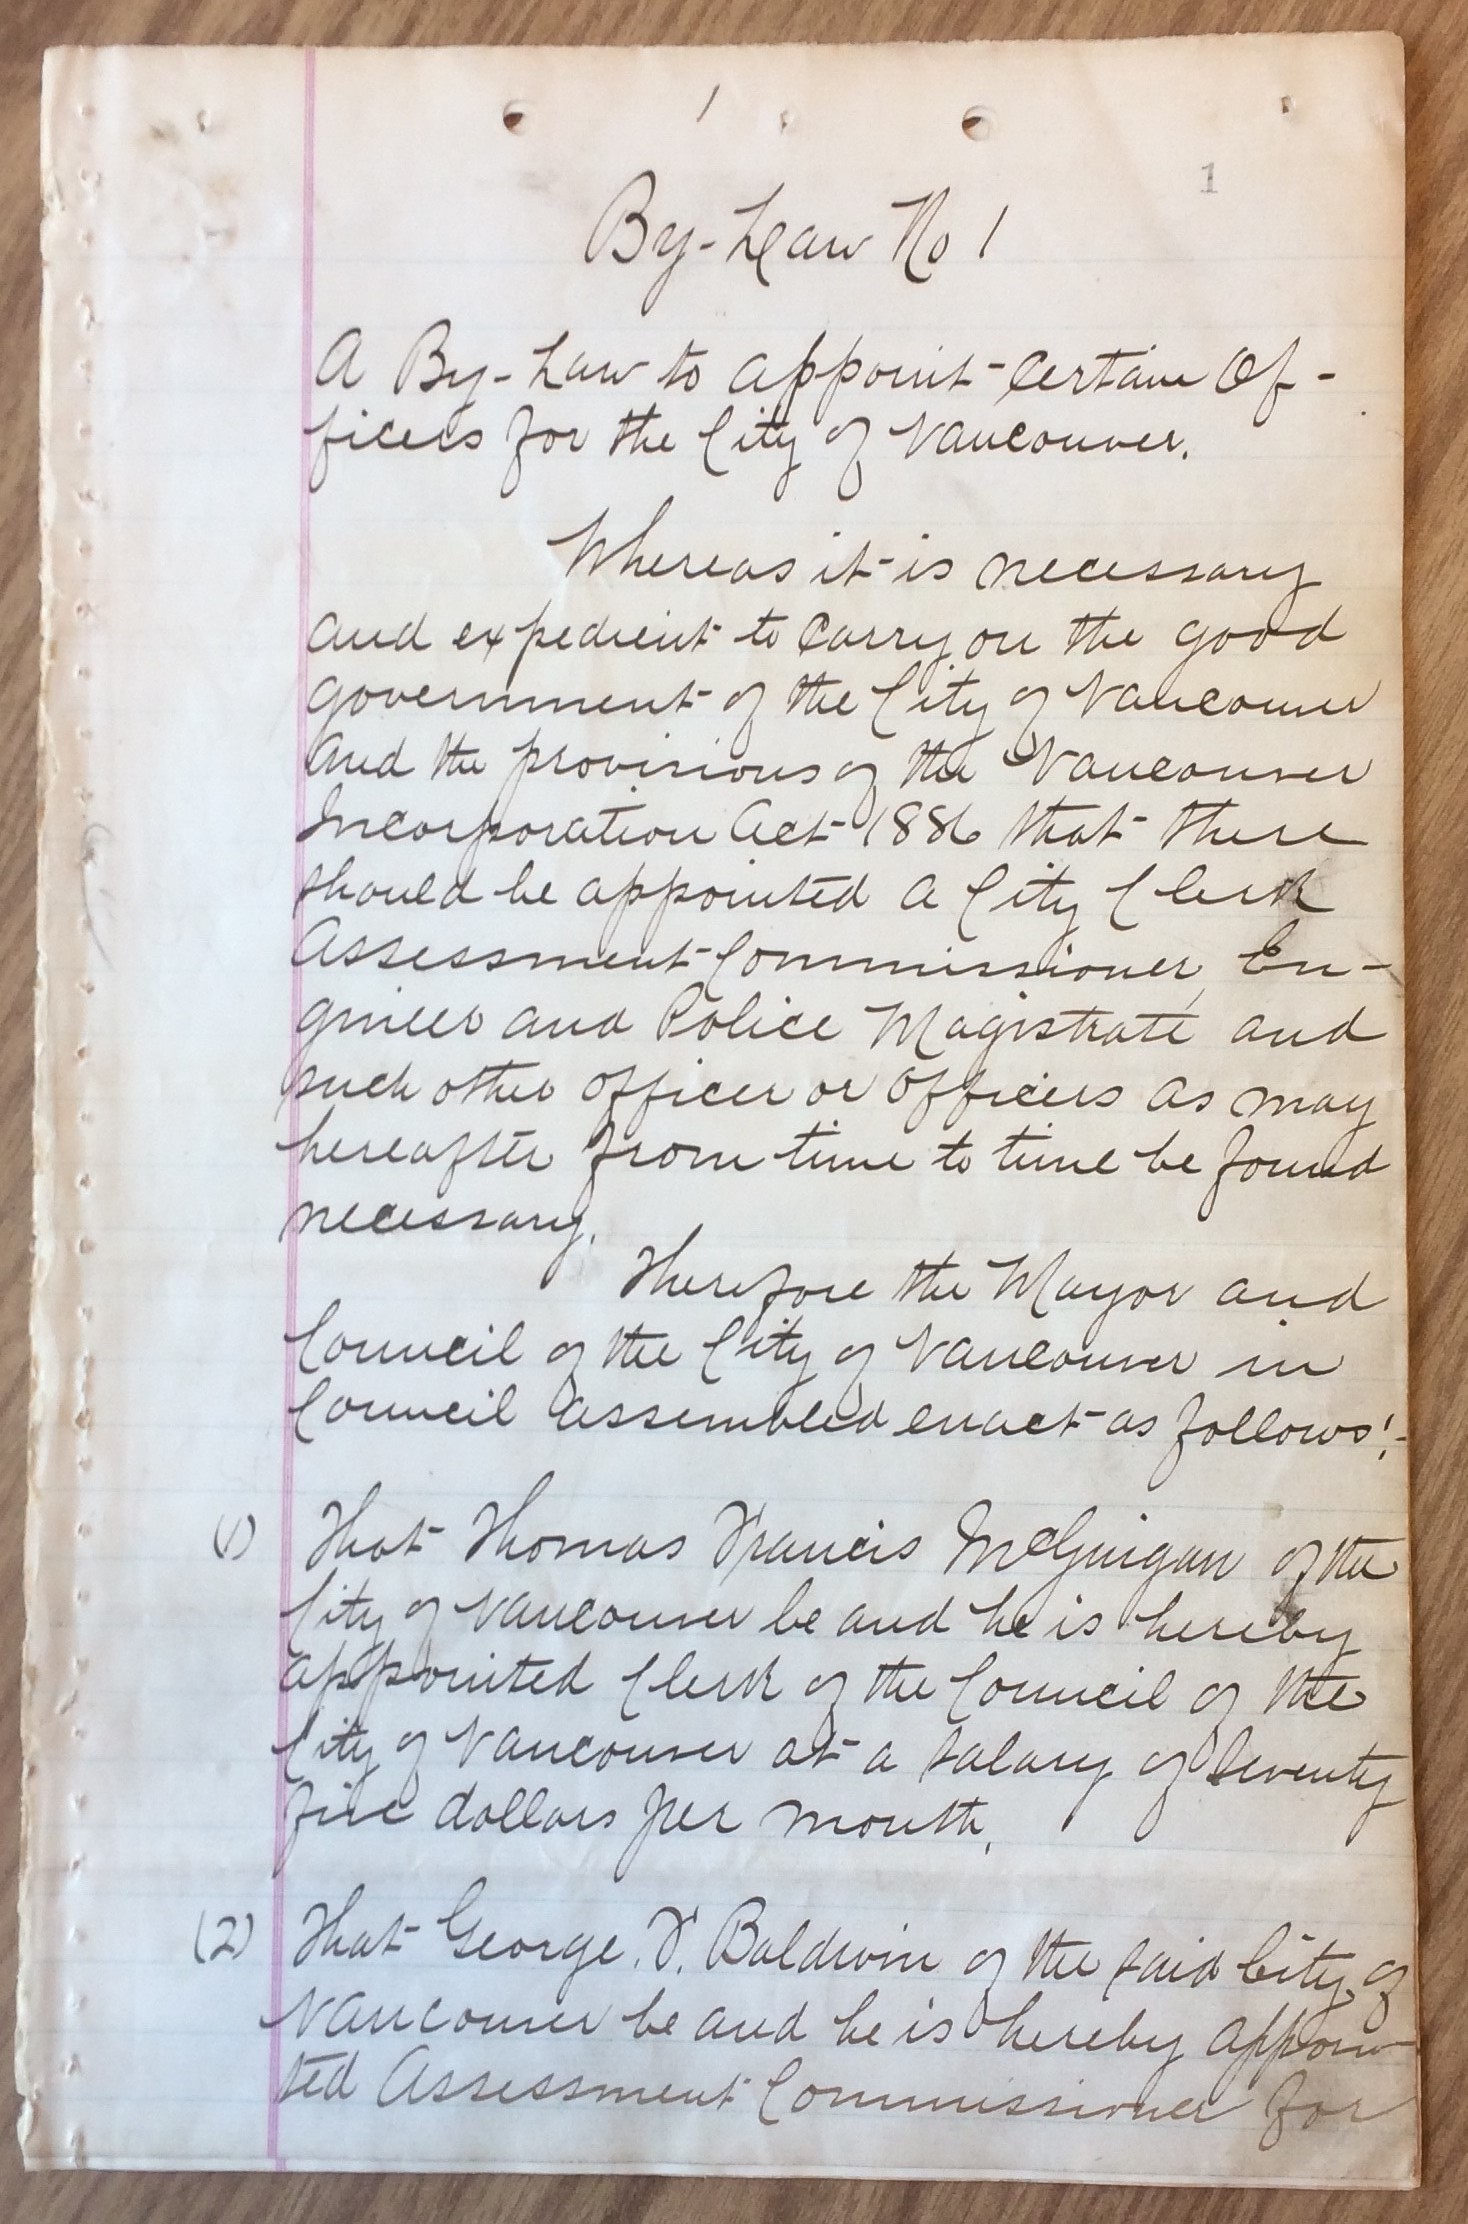 1
1
By-Law No 1
A By-Law to appoint certain Of-
ficers for the City of Vancouver.
Whereas it is necessary
and expedient to carry on the good
government of the City of Vancouver
and the provisions of the Vancouver
Incorporation Act 1886 that there
should be appointed a City Clerk
Assessment Commissioner, En-
gineer and Police Magistrate and
such other officer or officers as may
hereafter from time to time be found
necessary.
Therefore the Mayor and
Council of the City of Vancouver in
Council assembled enact as follows:-
(1) That Thomas Francis McGuigan of the
City of Vancouver be and he is hereby
appointed Clerk of the Council of the
City of Vancouver at a salary of seventy
five dollars per month.
(2) That George. F. Baldwin of the said City of
Vancouver be and he is hereby appoin-
ted Assessment Commissioner for